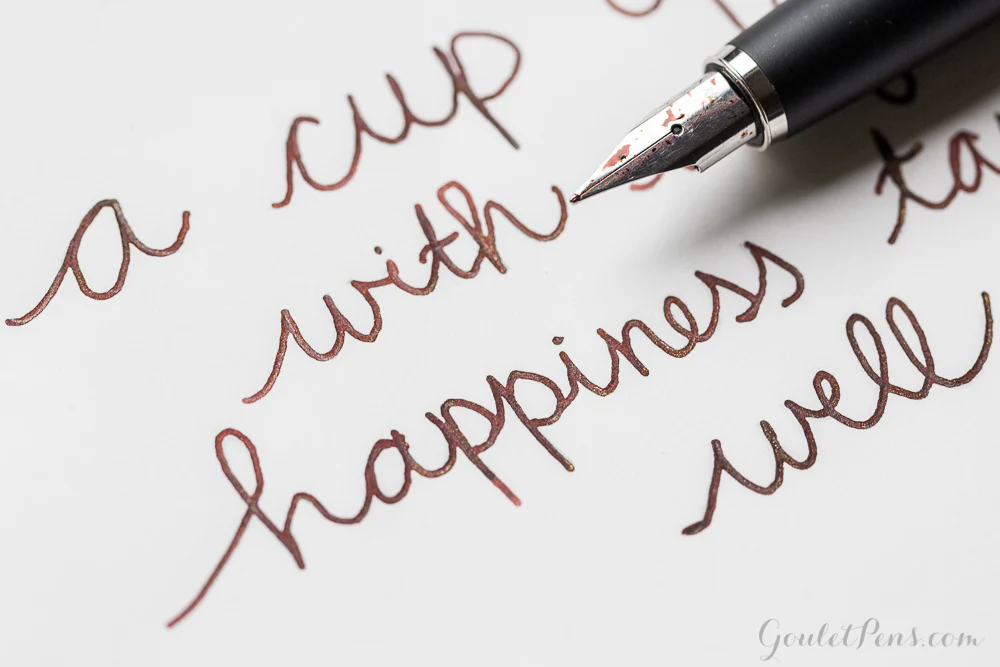 a cup
with
happiness ta
well
GouletPens.com